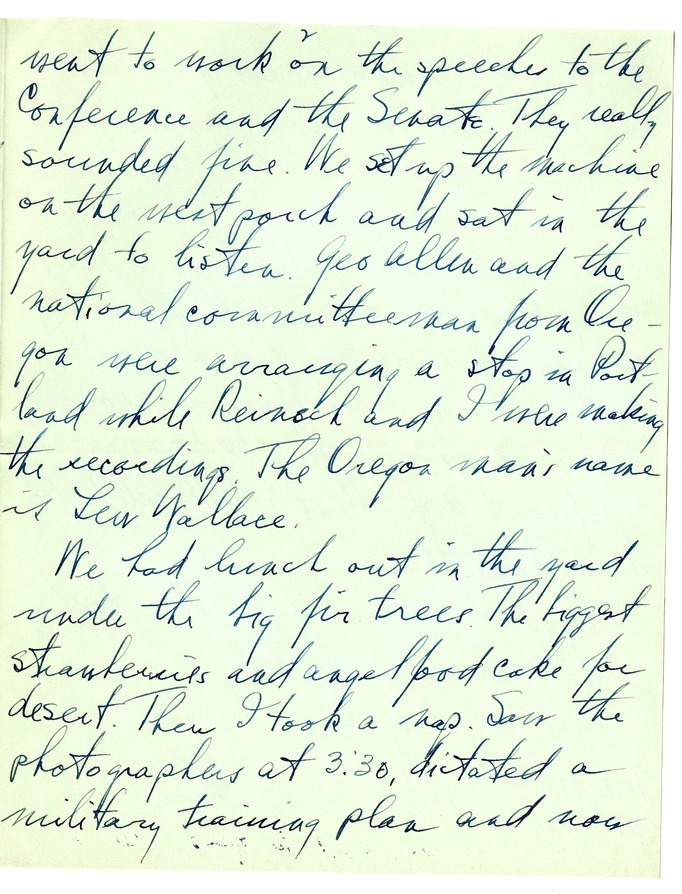 2
went to work on the speeches to the
Conference and the Senate. They really
sounded fine. We set up the machine
on the west porch and sat in the
yard to listen. Geo Allen and the
national committeeman from Ore-
gon were arranging a stop in Port-
land while Reinsch and I were making
the recordings. The Oregon man's name
is Lew Wallace.
We had lunch out in the yard
under the big fir trees. The biggest
strawberries and angel food cake for
desert. Then I took a nap. Saw the
photographers at 3:30, dictated a
military training plan and now